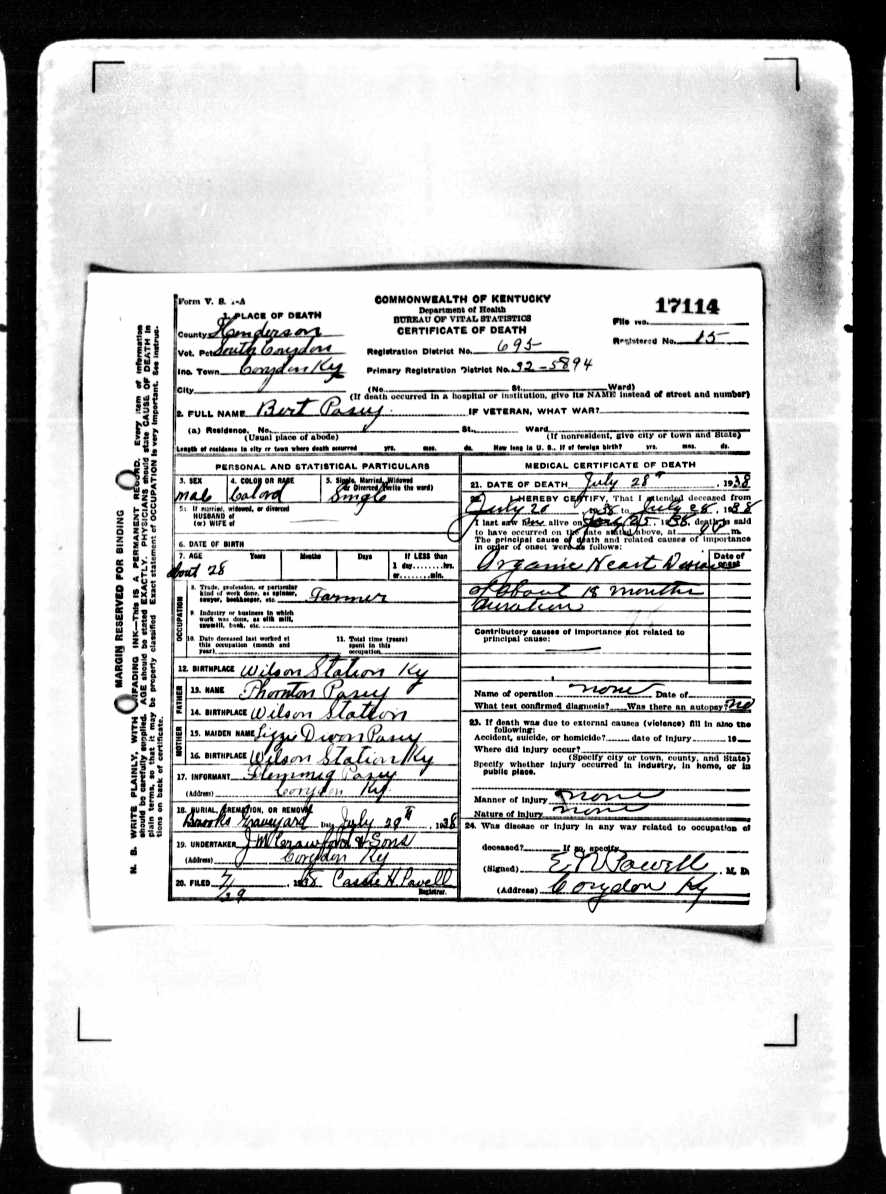 Form V. S. 1-A
COMMONWEALTH OF KENTUCKY
Department of Health
BUREAU OF VITAL STATISTICS
CERTIFICATE OF DEATH
17114
File No.
Registered No. 15
1. PLACE OF DEATH
County Henderson
Vot. Pct. South Corydon
Inc. Town Corydon Ky
City
Registration District No. 695
Primary Registration District No. 32-5894
(No. St. Ward)
(If death occurred in a hospital or institution, give its NAME instead of street and number)
2. FULL NAME Bert Posey IF VETERAN, WHAT WAR?
(a) Residence. No. St. Ward
(Usual place of abode) (If nonresident, give city or town and State)
Length of residence in city or town where death occurred yrs. mos. ds. How long in U. S., if of foreign birth? yrs. mos. ds.
PERSONAL AND STATISTICAL PARTICULARS
3. SEX
male
4. COLOR OR RACE
Colord
5. Single, Married, Widowed
or Divorced (write the word)
Single
5a. If married, widowed, or divorced
HUSBAND of
(or) WIFE of
6. DATE OF BIRTH
7. AGE Years Months Days If LESS than
about 28
1 day........hrs.
or........min.
OCCUPATION
8. Trade, profession, or particular
kind of work done, as spinner,
sawyer, bookkeeper, etc. Farmer
9. Industry or business in which
work was done, as silk mill,
sawmill, bank, etc.
10. Date deceased last worked at
this occupation (month and
year)
11. Total time (years)
spent in this
occupation
12. BIRTHPLACE Wilson Station Ky
FATHER
13. NAME Thornton Posey
14. BIRTHPLACE Wilson Station
MOTHER
15. MAIDEN NAME Lizzie Dixon Posey
16. BIRTHPLACE Wilson Station Ky
17. INFORMANT Flemmig Posey
(Address) Corydon Ky
18. BURIAL, CREMATION, OR REMOVAL
Brooks Graveyard Date July 29th, 1938
19. UNDERTAKER J M Crawford & Sons
(Address) Corydon Ky
20. FILED 7/29, 1938 Cassie H. Powell
Registrar.
MEDICAL CERTIFICATE OF DEATH
21. DATE OF DEATH July 28th, 1938
22. I HEREBY CERTIFY, That I attended deceased from
July 20 1938 to July 28, 1938
I last saw him alive on 1938, death is said
to have occurred on the date stated above, at m.
The principal cause of death and related causes of importance
in order of onset were as follows:
Date of
onset
Organic Heart Disease
of about 18 months
duration
Contributory causes of importance not related to
principal cause:
Name of operation none Date of
What test confirmed diagnosis? Was there an autopsy? no
23. If death was due to external causes (violence) fill in also the
following:
Accident, suicide, or homicide? date of injury 19
Where did injury occur?
(Specify city or town, county, and State)
Specify whether injury occurred in industry, in home, or in
public place.
Manner of injury none
Nature of injury none
24. Was disease or injury in any way related to occupation of
deceased? If so, specify
(Signed) E N Powell, M. D.
(Address) Corydon Ky
MARGIN RESERVED FOR BINDING
N. B. WRITE PLAINLY, WITH UNFADING INK—THIS IS A PERMANENT RECORD. Every item of information
should be carefully supplied. AGE should be stated EXACTLY. PHYSICIANS should state CAUSE OF DEATH in
plain terms, so that it may be properly classified. Exact statement of OCCUPATION is very important. See instruc-
tions on back of certificate.